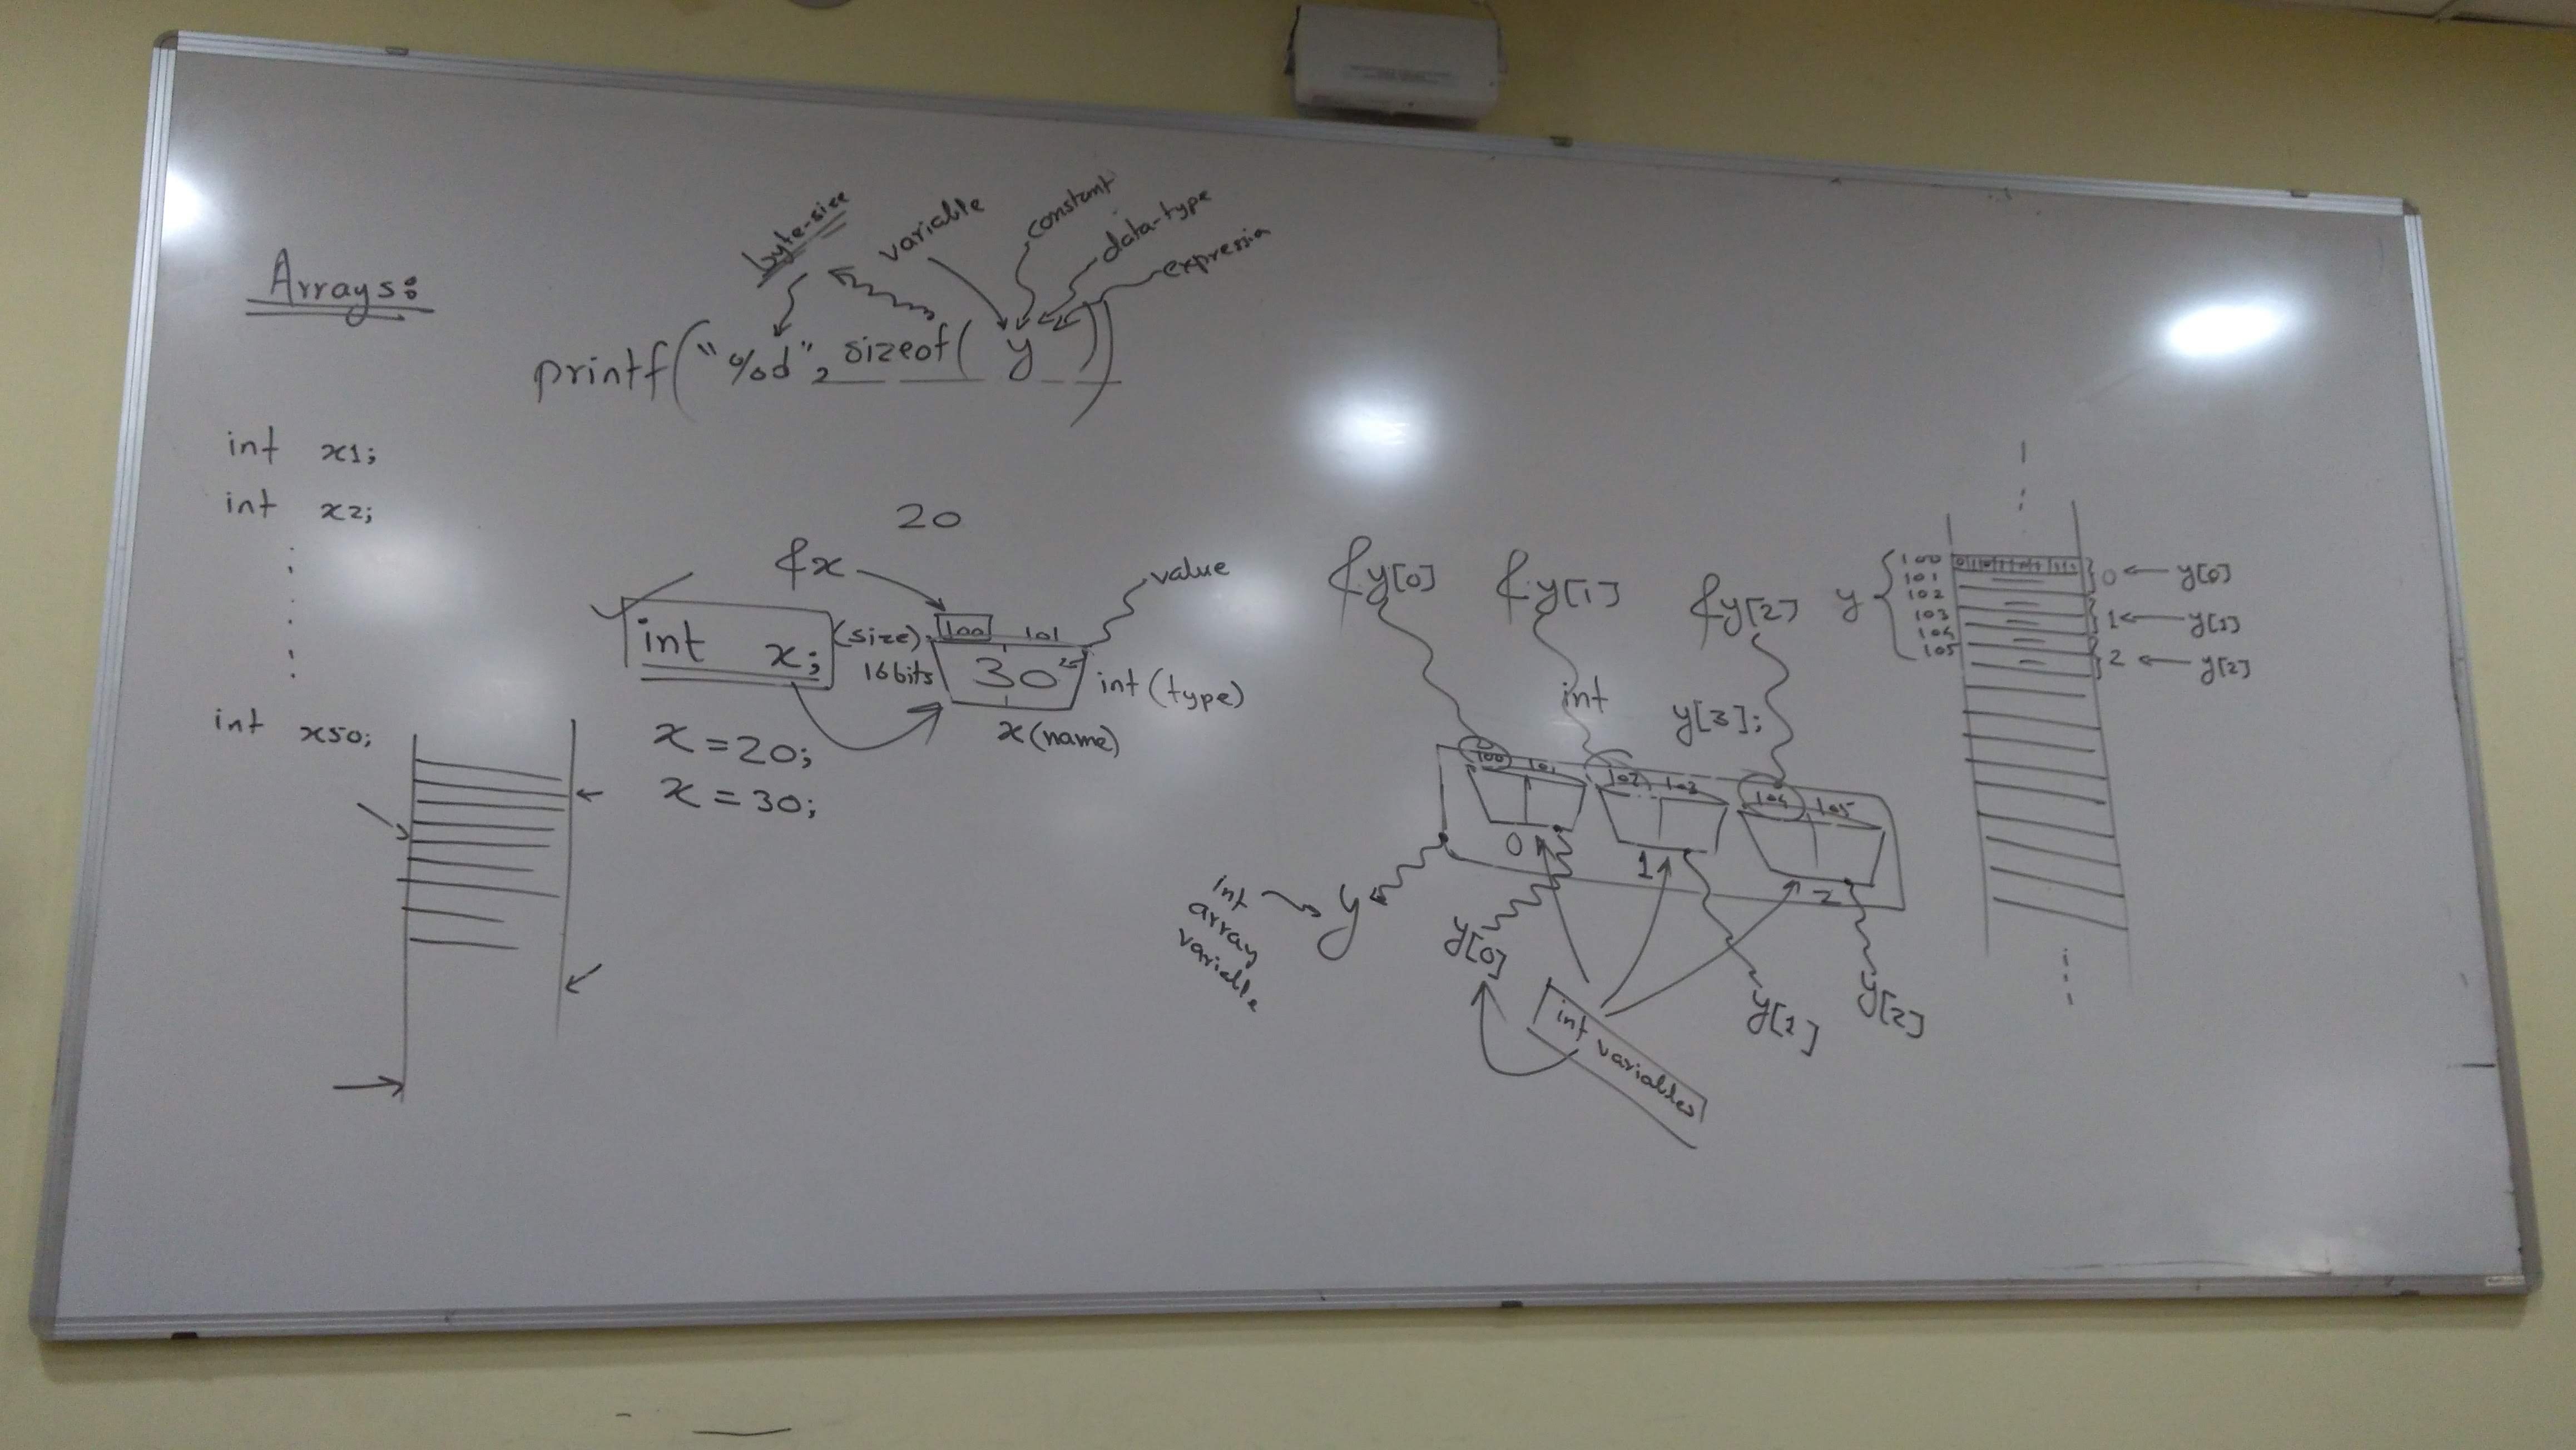 Arrays:
byte-size
variable
constant
data-type
expressin
printf("%d", sizeof( y ))
int x1;
int x2;
int x50;
20
&x
value
int x;
(size)
16 bits
100 101
30
int (type)
x (name)
x = 20;
x = 30;
&y[0] &y[1] &y[2]
int y[3];
100 101 102 103 104 105
0 1 2
int
array
variable
y
y[0]
y[1]
y[2]
int variables
y
100
101
102
103
104
105
0 ← y[0]
1 ← y[1]
2 ← y[2]